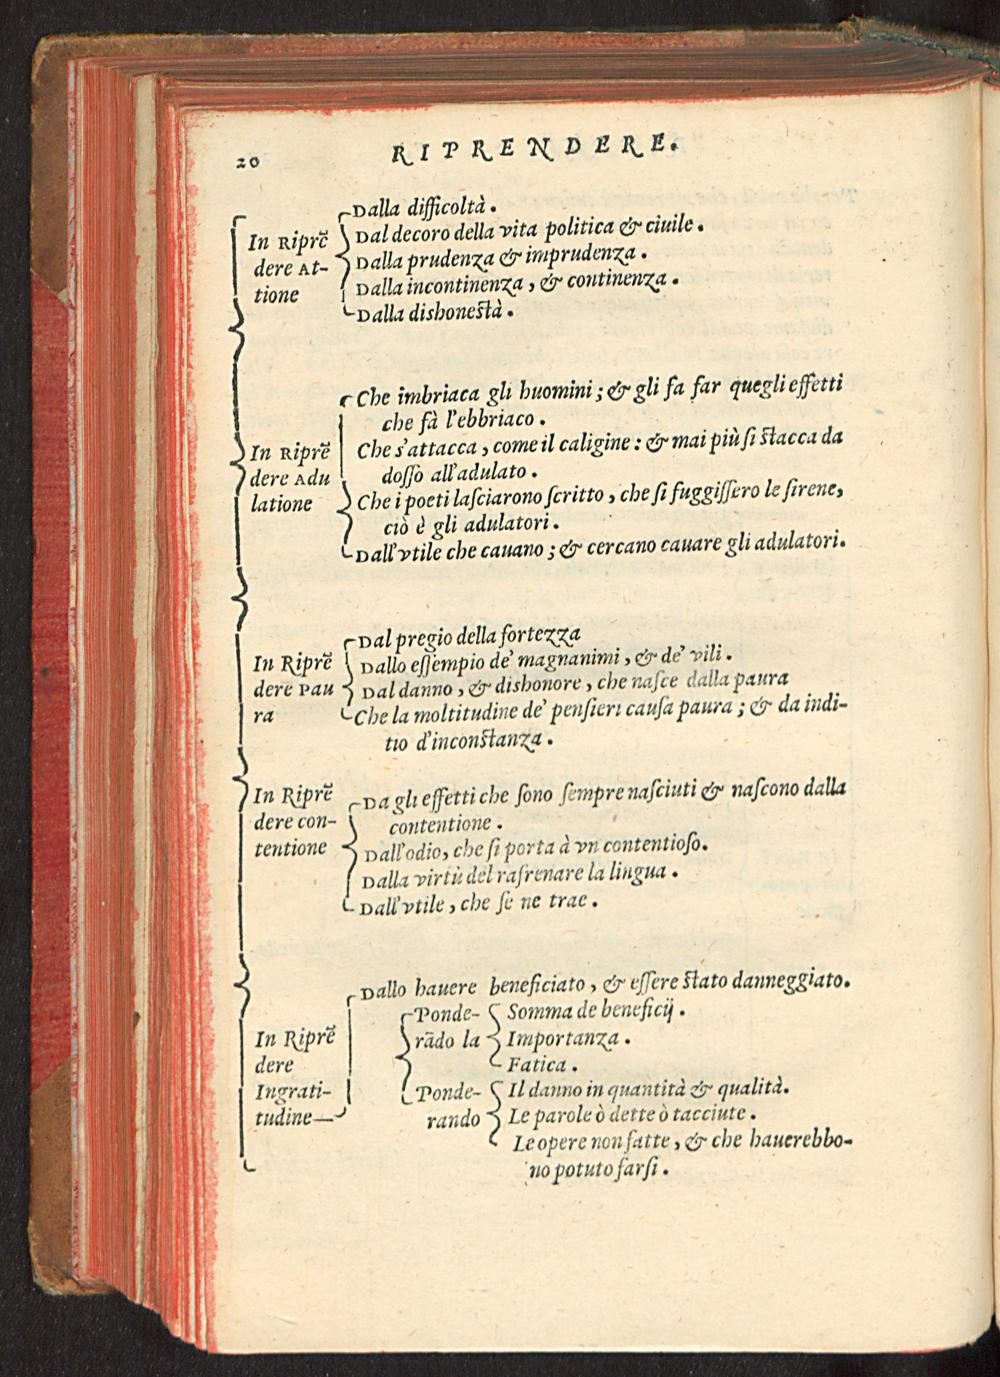 20
RIPRENDERE.
Dalla difficoltà.
Dal decoro della vita politica & ciuile.
In Riprẽ
dere At-
tione
Dalla prudenza & imprudenza.
Dalla incontinenza, & continenza.
Dalla dishonestà.
Che imbriaca gli huomini; & gli fa far quegli effetti
che fà l'ebbriaco.
In Riprẽ
dere Adu
latione
Che s'attacca, come il caligine: & mai più si stacca da
dosso all'adulato.
Che i poeti lasciarono scritto, che si fuggissero le sirene,
ciò è gli adulatori.
Dall'vtile che cauano; & cercano cauare gli adulatori.
In Riprẽ
dere Pau
ra
Dal pregio della fortezza
Dallo essempio de' magnanimi, & de' vili.
Dal danno, & dishonore, che nasce dalla paura
Che la moltitudine de' pensieri causa paura; & da indi-
tio d'inconstanza.
In Riprẽ
dere con-
tentione
Da gli effetti che sono sempre nasciuti & nascono dalla
contentione.
Dall'odio, che si porta à vn contentioso.
Dalla virtù del rafrenare la lingua.
Dall'vtile, che se ne trae.
In Riprẽ
dere
Ingrati-
tudine
Dallo hauere beneficiato, & essere stato danneggiato.
Ponde-
rãdo la
Somma de beneficij.
Importanza.
Fatica.
Ponde-
rando
Il danno in quantità & qualità.
Le parole ò dette ò tacciute.
Le opere non fatte, & che hauerebbo-
no potuto farsi.